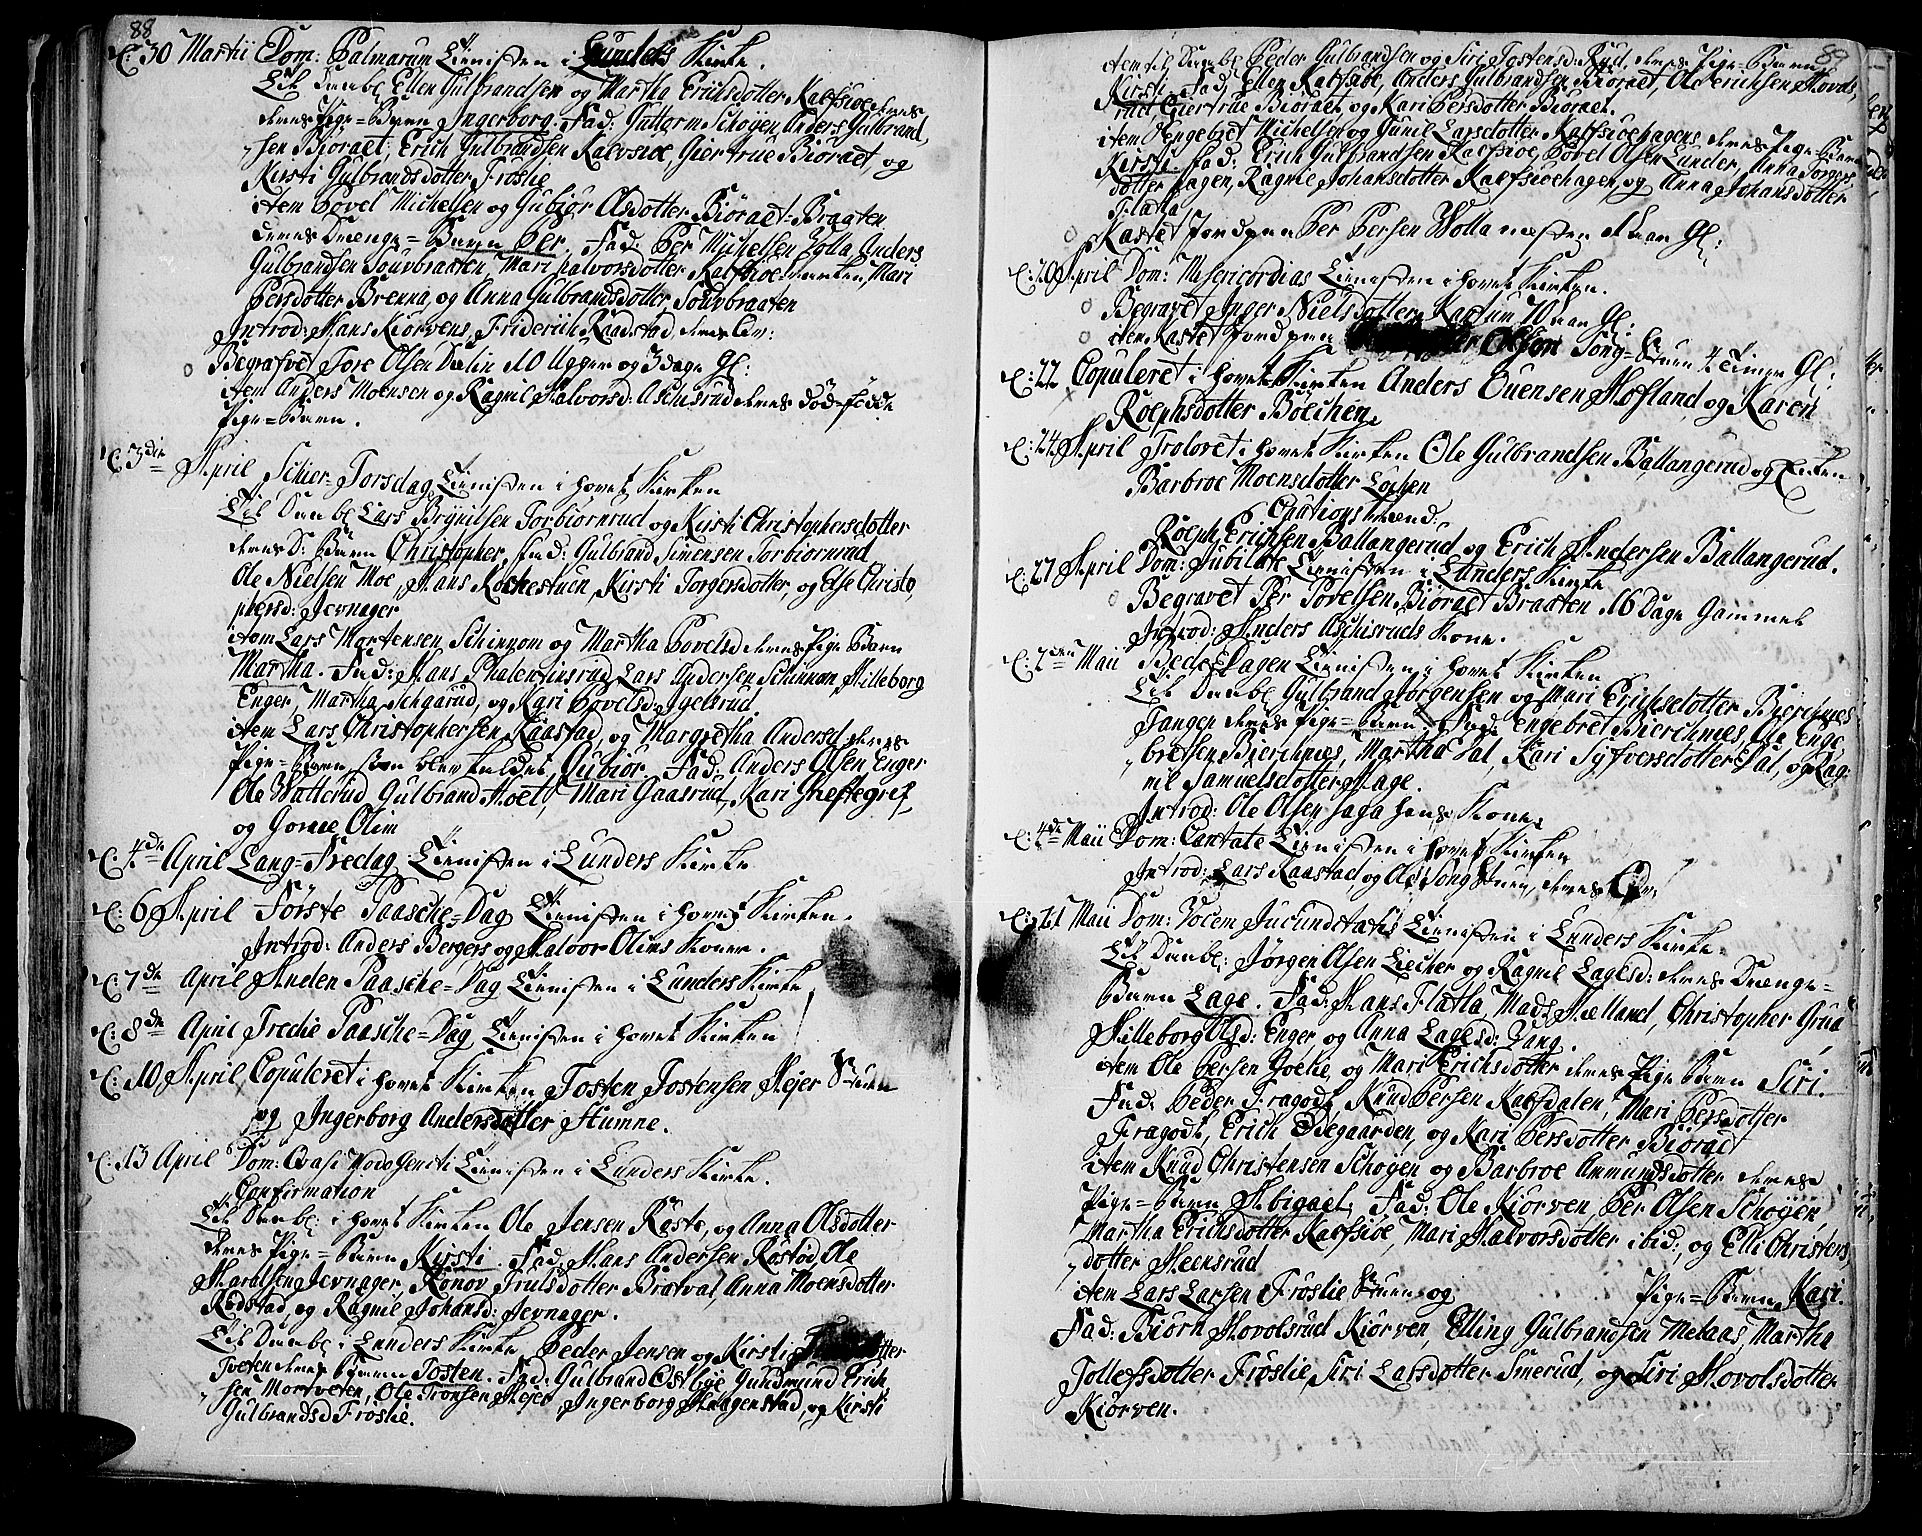 88
D: 30 Martii Dom: Palmarum Tienisten i Lunders Kirke.
Til Daabs Ellen Gulbrandsen og Martha Erichsdotter Kalfsiöe deres
deres Pige=Barn Ingerborg. Fad: Guttorm Schögen, Anders Gulbrand,
sen Bioraet, Erich Gulbrandsen Kalvsiöe, Giertrue Bioraet, og
Kirsti Gulbrandsdotter Fröslie
item Povel Michelsen og Gubiör Olsdotter Bioraet=Braaten
deres Drenge=Barn Per. Fad: Per Michelsen Volla Anders
Gulbrandsen Sourbraaten, Mari Halvorsdotter Kalfsiöe Mari
Persdotter Brenna, og Anna Gulbrandsdotter Sourbraaten
Introd: Hans Kiörvens, Friderich Raadstad, deres
Begravet Tore Olsen Dælin 10 Uger og 3 dage Gl:
item Anders Moensen og Ragnil Halvorsd: Aschisrud deres död=födde
Pige=Barn.
D: 3die April Schier=Torsdag Tienisten i Hovet Kirken
Til Daabs Lars Brynilsen Torbiornrud og Kirsti Christophersdotter
deres D: Barn Christopher, Fad: Gulbrand Simensen Torbiornrud
Ole Nielsen Moe, Hans Kochestuen, Kirsti Torgersdotter, og Else Christo,
phersd: Jevnager
item Lars Mortensen Schinnom og Martha Povelsd deres Pige Barn
Martha. Fad: Hans Phalentinsrud Lars Andersen Schinnom, Hilleborg
Enger, Martha , og Kari Povelsd: Igelsrud.
item Lars Christophersen Raastad, og Margretha Andersd deres
Pige=Barn, som blev kaldet Gubiör. Fad: Anders Olsen Enger
Ole Wattcrud, Gulbrand Hoel, Mari Gaasrud, Kari
og Gorue Olim
D: 4de April Lang=Fredag Tienisten i Lunders Kirke
D: 6 April Förste Paasche=Dag Tienisten i Hovet Kirken.
Introd: Anders Bergers og Halvor Olims Koner.
D: 7de April Anden Paasche=Dag Tienisten i Lunders Kirke
D: 8de April Tredie Paasche=Dag Tienisten i Hovet Kirken
D: 10 April Copuleret i Hovet Kirken Tosten Tostensen Hejer Stuen
og Ingerborg Andersdotter Humne.
D: 13 April Dom: Qvasi Modo Geniti Tienisten i Lunders Kirke.
Confirmation
Til Daabs i Hovet Kirken Ole Jensen Röste, og Anna Olsdotter
deres Pige=Barn Kirsti. Fad: Hans Andersen Röstød, Ole
Haralsen Jevnager, Ronov Trulsdotter Bratval, Anna Moensdotter
Rödstad, og Ragnil Johansd: Jevnager.
Til Daabs i Lunders Kirke Peder Jensen og Kirsti
Tveten deres Barn Tosten. Fad: Gulbrand Östbye Gundmund Erich
sen Mortveten, Ole Tronsen Hejer, Ingerborg Haagenstad, og Kirsti
Gulbrandsd Fröslie.
89
item til Daabs Peder Gulbrandsen og Siri Tostensd: Rud, deres Pige=Barn
Kirsti. Fad. Ellen Kalfsiöe, Anders Gulbrandsen Bioraet, Ole Erichsen Hovds,
raet, Giertrue Bioraet og Kari Persdotter Bioraet.
item Engebret Michelsen og Gunil Larsdotter Kalfsiöehagens deres Pige=Barn
Kirsti. Fad: Erich Gulbrandsen Kalfsiöe, Povel Olsen Lunder, Anna Torgers
dotter Hagen, Ragnie Johansdotter Kalfsiöehagen, og Anna Johansdotter
Flatla
Kastet Jord paa Per Persen Wolla næsten 1 aar Gl:
D: 20 April Dom: Misericordias Tienisten i Hovet Kirken.
Begravet Inger Nielsdotter Kastum 70 aar Gl:
item Kastet Jord paa Olsen Song=Stuen 4 Timer Gl:
D: 22 Copuleret i Hovet Kirken Anders Evensen Hofland og Karen
Rolphsdotter Bölchen
D: 24 April Trolovet i Hovet Kirken Ole Gulbrandsen Ballangerud og Enken
Barbroe Moensdotter Lochen
Cautions Mænd:
Rolph Erichsen Ballangerud og Erich Andersen Ballangerud.
D: 27 April Dom: Jubilate Tienisten i Lunders Kirke
Begravet Per Povelsen Bioraet Braaten 16 Dage Gammel
Introd: Anders Aschisruds Kone.
D: 2den Maii Bede Dagen Tienisten i Hovet Kirken
Til Daabs Gulbrand Jörgensen og Mari Erichsdotter Bierchnes
Tangen deres Pige=Barn Fad: Engebret Bierchnes, Ole Enge,
bretsen Bierchnes, Martha Dal, Kari Syfversdotter Dal, og Rag:
nil Samuelsdotter Hage.
Introd: Ole Olsen Haga hans Kone.
D: 4de Maii Dom: Cantate Tienisten i Hovet Kirken
Introd: Lars Raastad, og Ole Song Stuen, deres
D: 11 Maii Dom: Vocem Jucunditatis Tienisten i Lunders Kirke.
Til Daabs: Jörgen Olsen Liecher og Ragnil Lagesd: deres Drenge=
Barn Lage. Fad: Hans Flatla, Mads Hælland, Christopher Grua
Hilleborg Olsd: Enger og Anna Lagesd: Vang.
item Ole Persen Goelie, og Mari Erichsdotter deres Pige Barn Siri.
Fad. Peder Fragodt Knud Persen Kalfdalen, Mari Persdotter
Fragodt, Erich Ödegaarden, og Kari Persdotter Bioraet
item Knud Christensen Schogen og Barbroe Ammundsdotter deres
Pige=Barn Abigael. Fad: Ole Kiörven, Per Olsen Schogen,
Martha Erichsdotter Kalfsiöe, Mari Halvorsdotter ibid:, og Elli Christens,
dotter Heensrud
item Lars Larsen Fröslie Stuen og Pige=Barn Kari.
Fad: Biörn Hovolsrud Kiörven, Elling Gulbrandsen Melaas, Martha
Tollefsdotter Fröslie, Siri Larsdotter Smerud, og Siri Hovolsdotter
Kiörven.